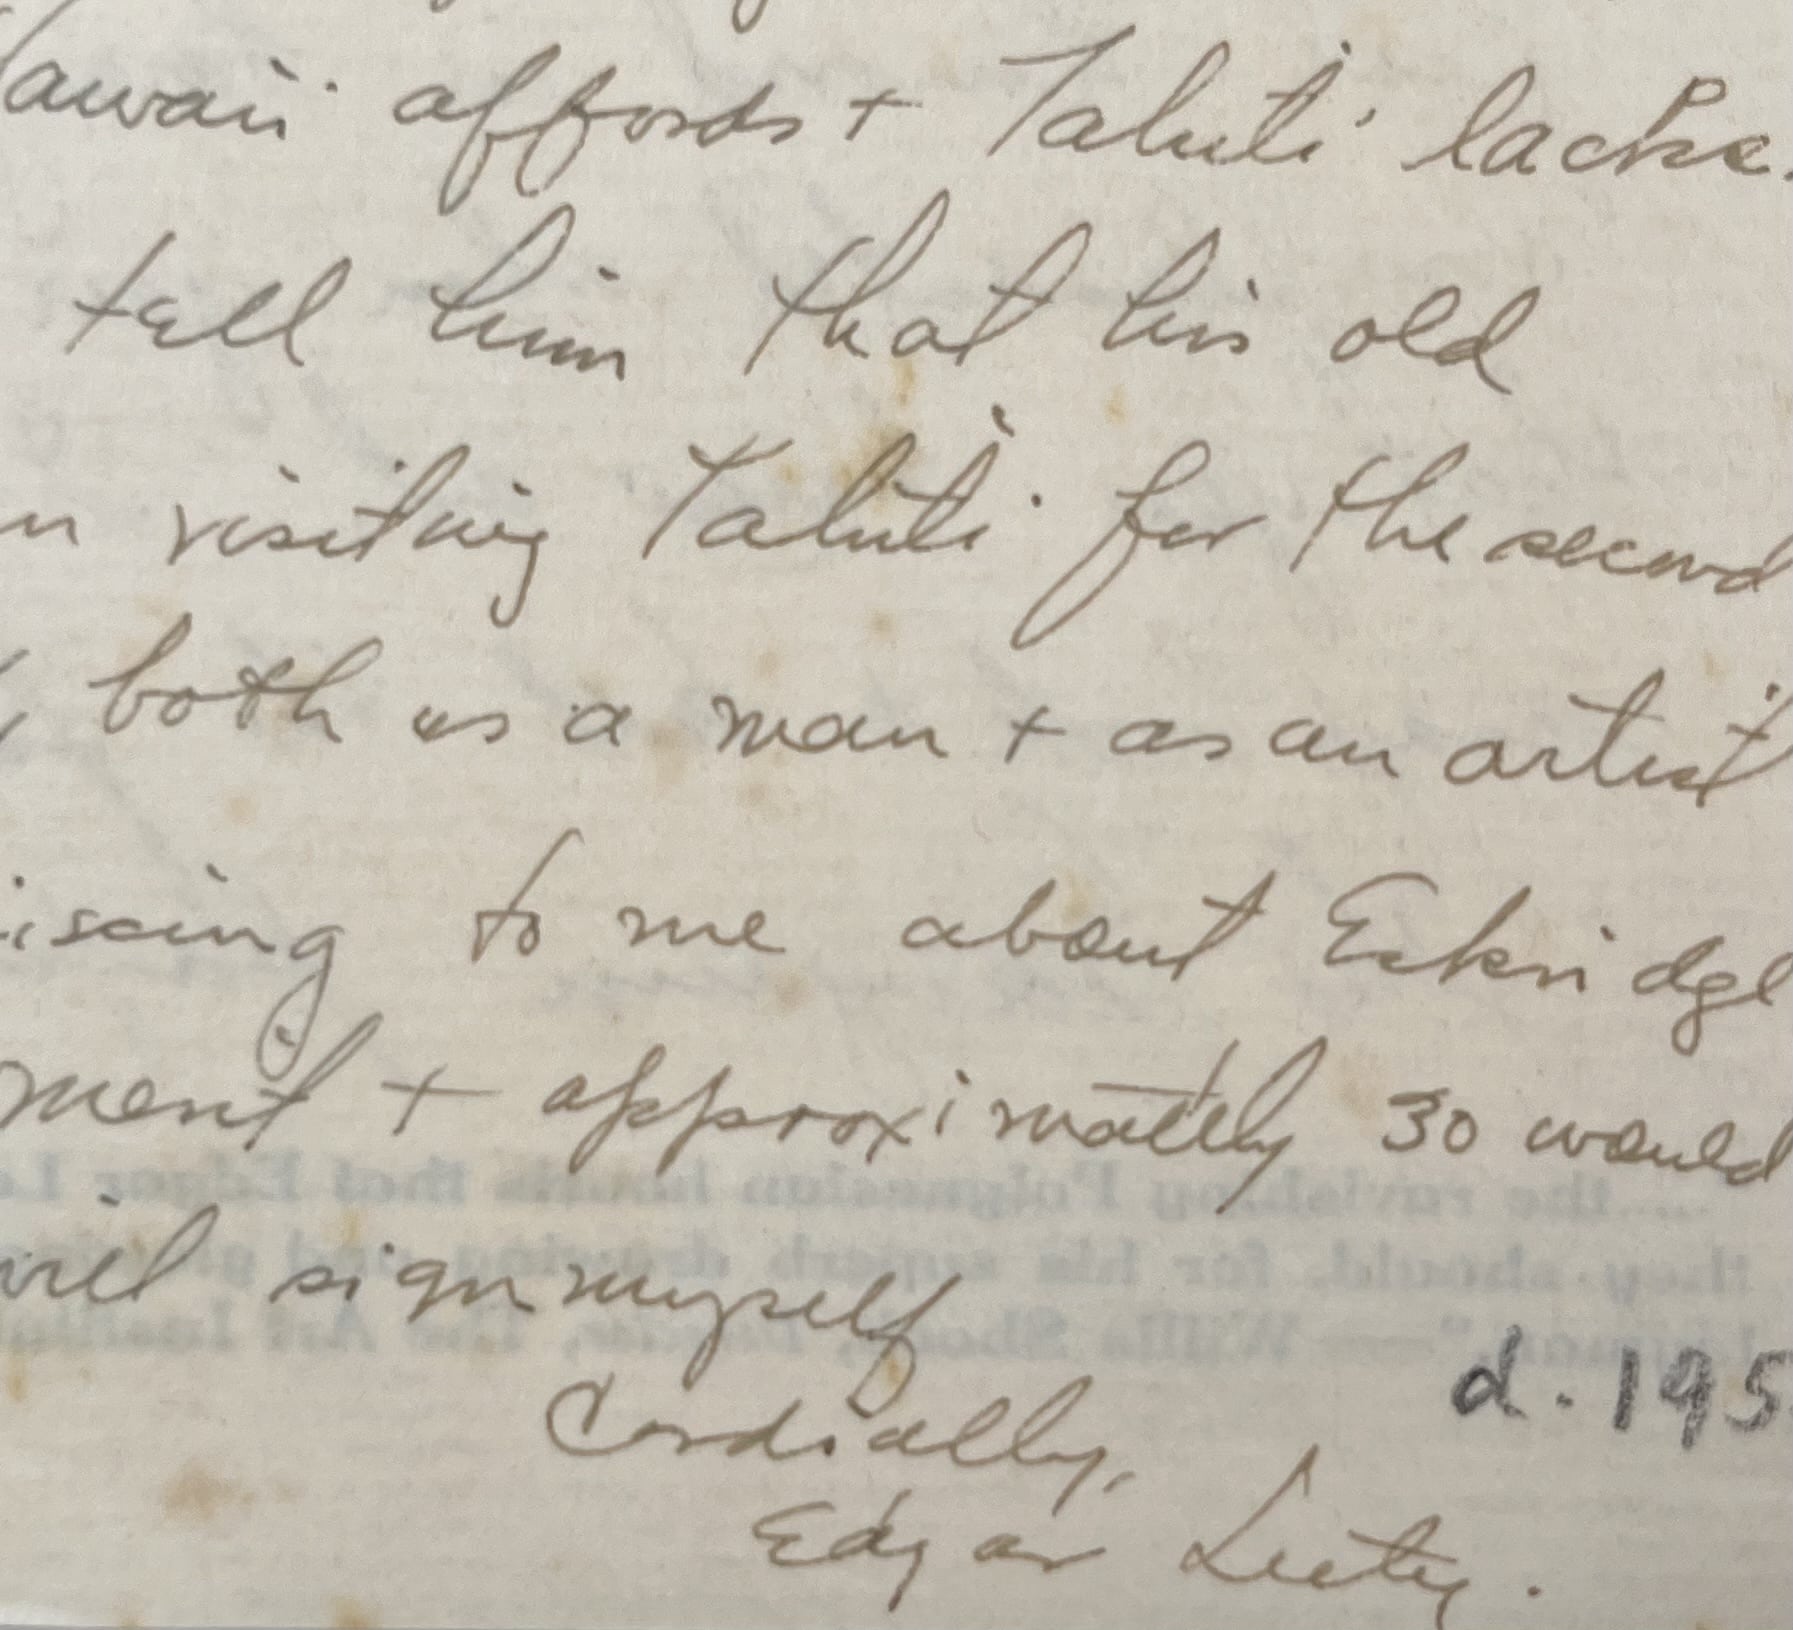 awaii affords + Tahiti lacks.
tell him that his old
n visiting Tahiti for the second
both as a man + as an artist
iscing to me about Eskridge
ment + approximately 30 would
will sign myself
Cordially,
d. 195
Edgar Leeteg.
... the ravishing Polynesian beauts that Edgar Le
they should, for his superb drawing and
Willis Shook, The Art Institu